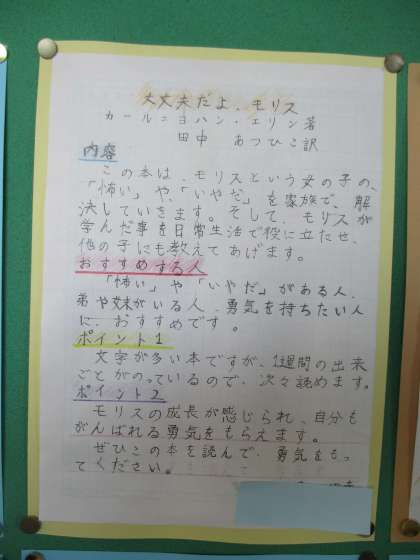 大丈夫だよ、モリス
カール=ヨハン・エリン著
田中 あつひこ訳
内容
この本は、モリスという女の子の、
「怖い」や、「いやだ」を家族で、解
決していきます。そして、モリスが
学んだ事を日常生活で役に立たせ、
他の子にも教えてあげます。
おすすめする人
「怖い」や「いやだ」がある人、
弟や妹がいる人、勇気を持ちたい人
に、おすすめです。
ポイント1
文字が多い本ですが、1週間の出来
ごとがのっているので、次々読めます。
ポイント2
モリスの成長が感じられ、自分も
がんばれる勇気をもらえます。
ぜひこの本を読んで、勇気をもっ
てください。